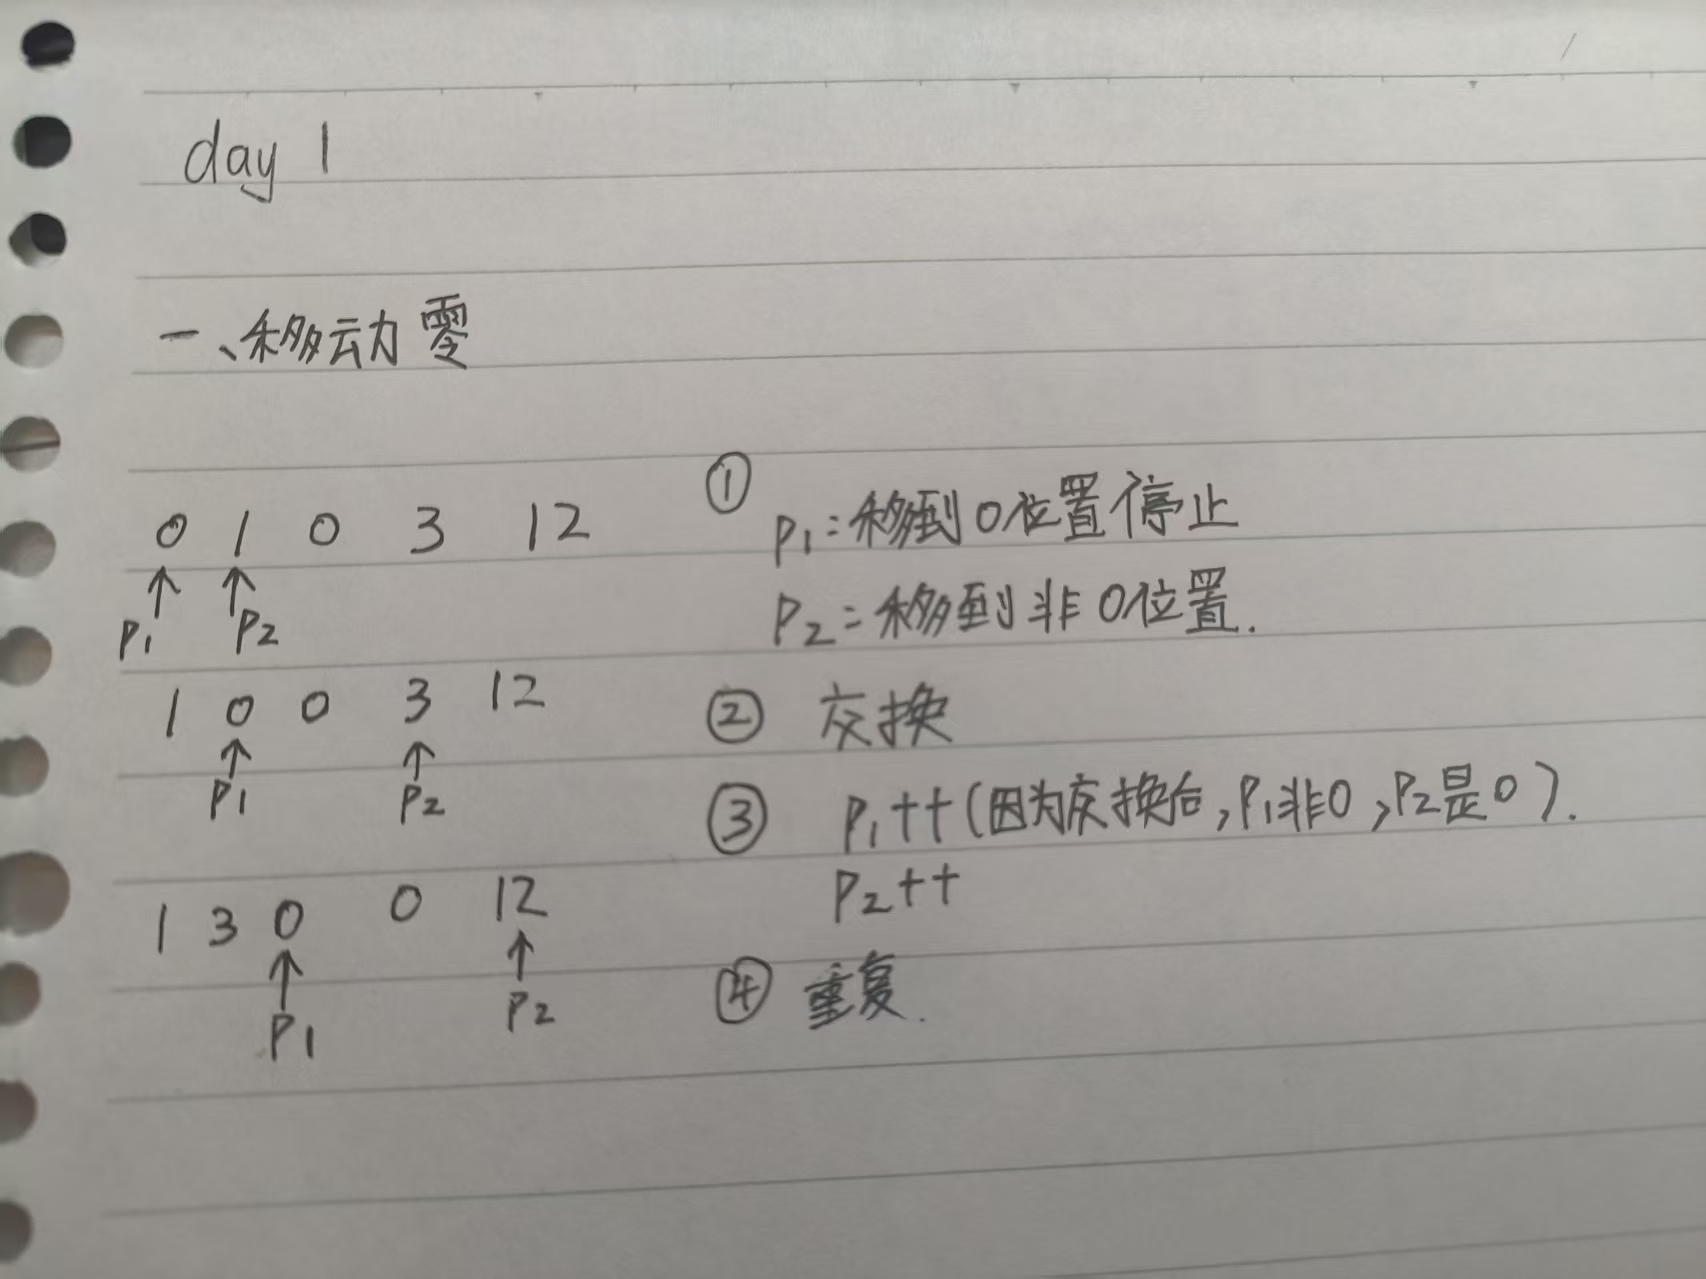 day 1
一、移动零
0 1 0 3 12
↑ ↑
P1 P2
1 0 0 3 12
↑ ↑
P1 P2
1 3 0 0 12
↑ ↑
P1 P2
①
P1:移到0位置停止
P2:移到非0位置.
② 交换
③ P1++(因为交换后,P1非0,P2是0).
P2++
④ 重复.